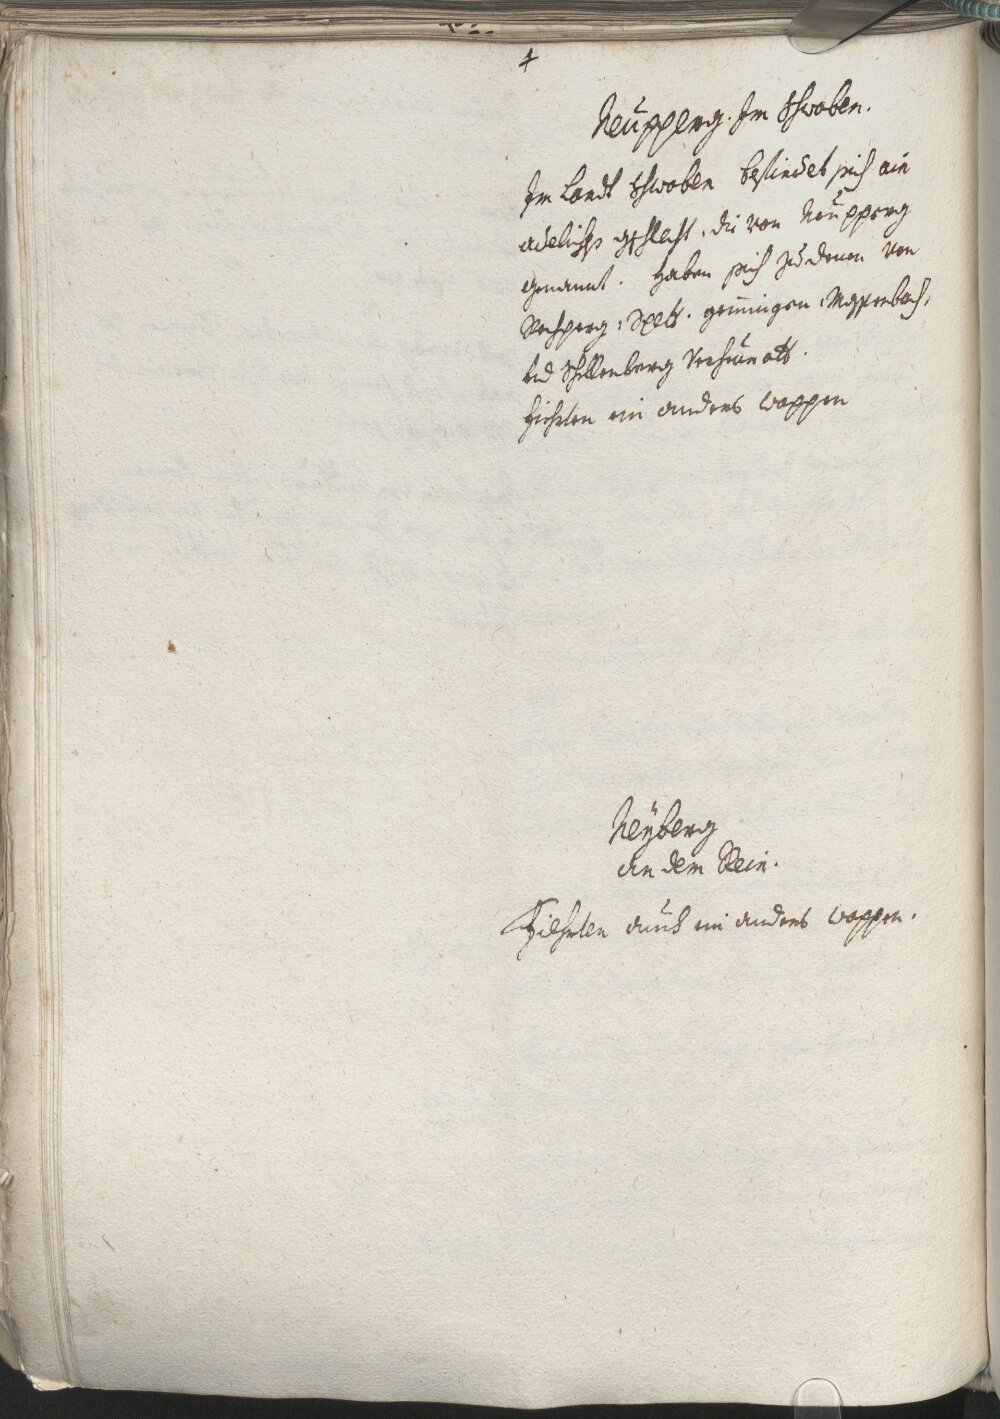 4
Neupperg. Im Schwaben.
Im Landt Schwaben befindet sich ain
adelichs geschlecht, die von Neupperg
genannt. haben sich zu denen von
Rechperg, Spett. gemmingen,
und Schellenberg Verheuratt.
fiehrten ein anders wappen
Neÿberg
an dem Rein.
Fiehrten auch ein anders wappen.